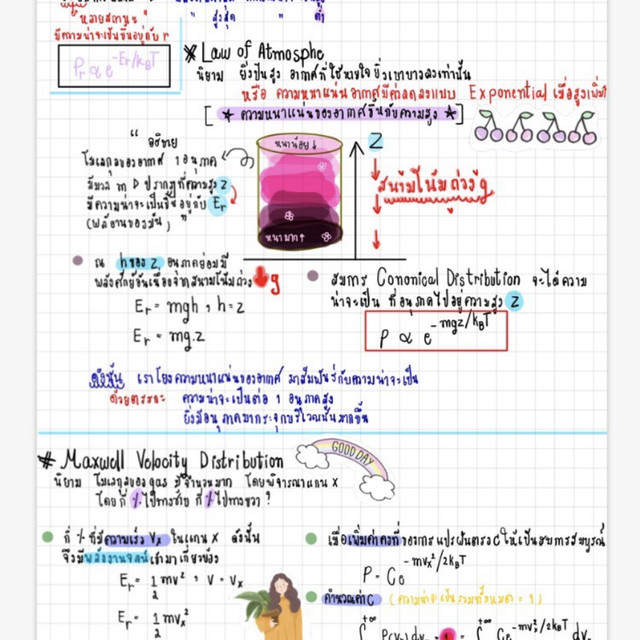 "หลายสถานะ"
" สูงสุด " ต่ำ
มีความน่าจะเป็นขึ้นอยู่กับ r
Pr ∝ e^-Er/kBT
* Law of Atmosphe
นิยาม ยิ่งปีนสูง อากาศที่ใช้หายใจยิ่งเบาบางลงเท่านั้น
หรือ ความหนาแน่นอากาศมีค่าลดลงแบบ Exponential เมื่อสูงเพิ่ม
[ * ความหนาแน่นของอากาศขึ้นกับความสูง * ]
" อธิบาย
โมเลกุลของอากาศ 1 อนุภาค
มีมวล m ปรากฏที่ความสูง z
มีความน่าจะเป็นขึ้นอยู่กับ Er
(พลังงานของมัน) "
หนาน้อย ↓
หนามาก ↑
Z
สนามโน้มถ่วง g
ณ h ของ z อนุภาคย่อมมี
พลังศักย์อันเนื่องจากสนามโน้มถ่วง g
Er = mgh , h = z
Er = mg.z
สมการ Canonical Distribution จะได้ความ
น่าจะเป็น ที่อนุภาคไปอยู่ความสูง z
P ∝ e^-mgz/kBT
ดังนั้น เราโยงความหนาแน่นของอากาศ มาสัมพันธ์กับความน่าจะเป็น
ด้วยตรรกะ ความน่าจะเป็นต่อ 1 อนุภาคสูง
ยิ่งมีอนุภาคมากระจุกบริเวณนั้นมากขึ้น
* Maxwell Velocity Distribution
GOOD DAY
นิยาม โมเลกุลของ gas มีจำนวนมาก โดยพิจารณาแกน x
โดยกี่ % ไปทางซ้าย กี่ % ไปทางขวา ?
กี่ % ที่มีความเร็ว Vx ในแกน x ดังนั้น
จึงมีพลังงานจลน์เข้ามาเกี่ยวข้อง
Er = 1/2 mv² , v = vx
Er = 1/2 mvx²
เมื่อเพิ่มค่าคงที่ของการแปรผันตรง C ให้เป็นสมการสมบูรณ์
P = Ce^-mvx²/2kBT
คำนวณค่า C (ความน่าจะเป็นรวมทั้งหมด = 1)